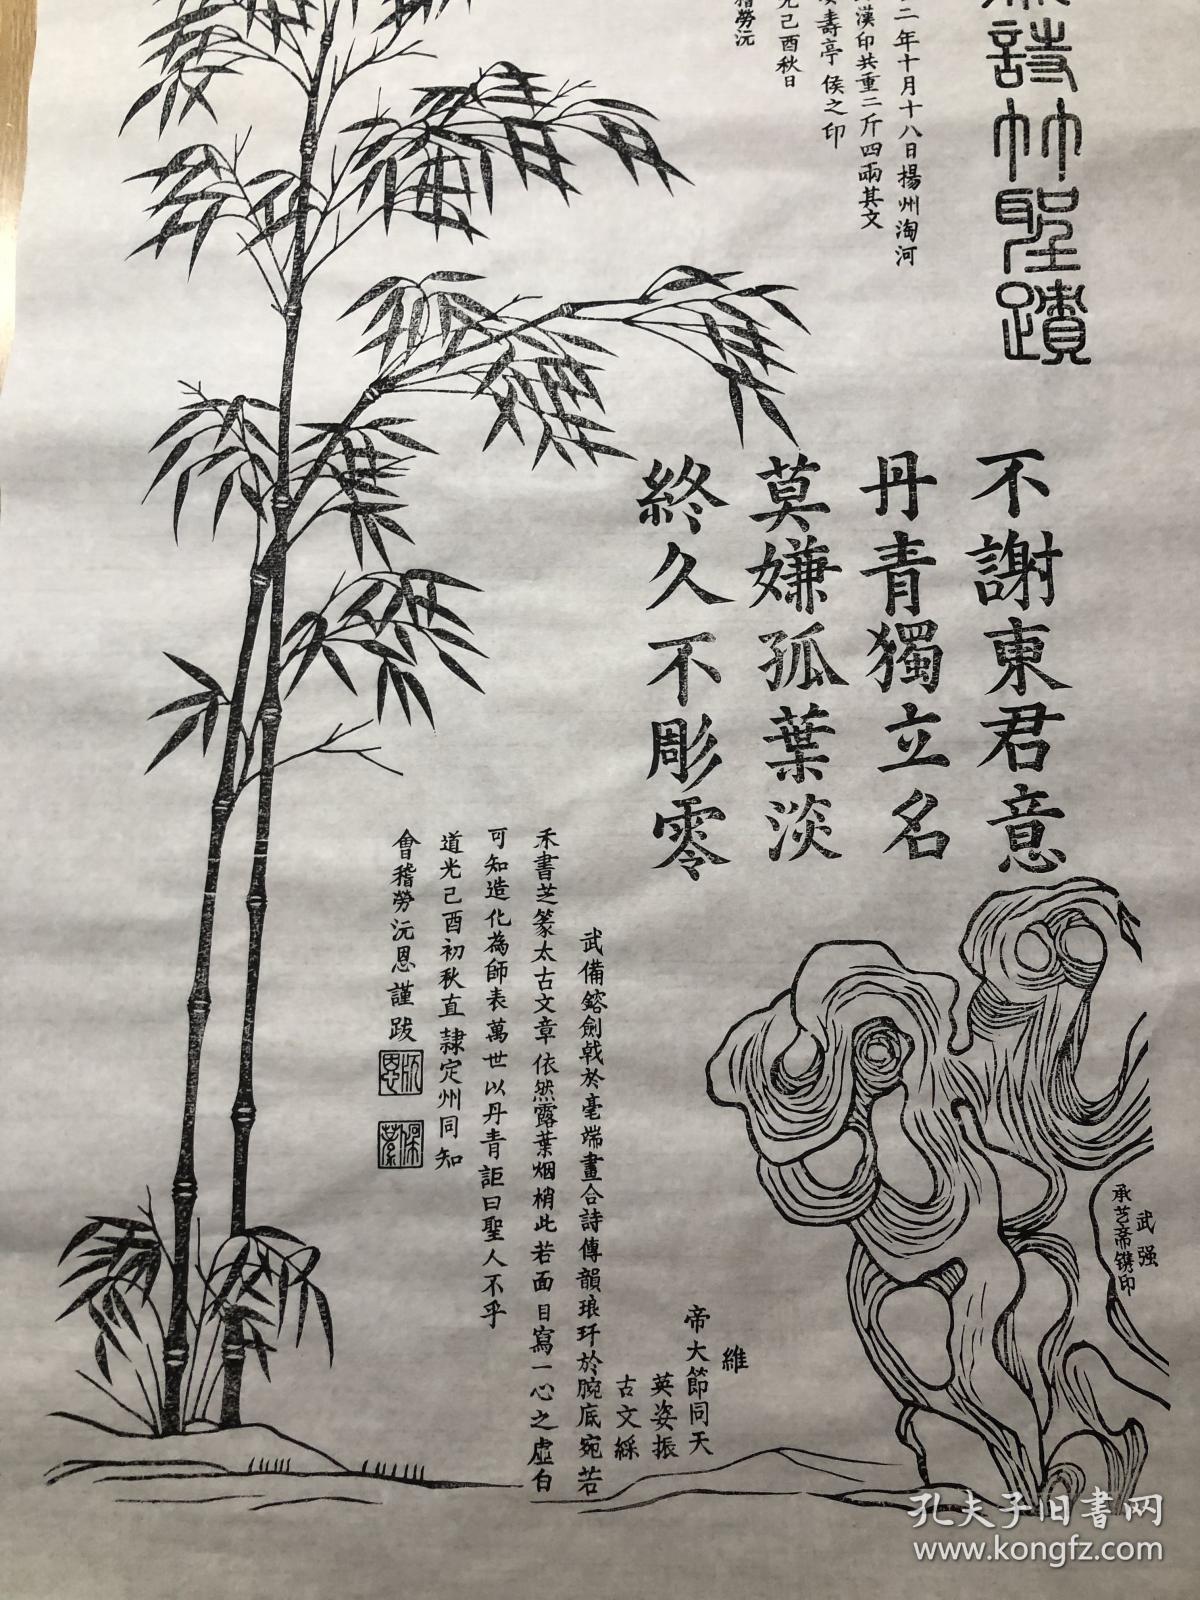 詩竹聖蹟
二年十月十八日揚州淘河
漢印共重二斤四兩其文
壽亭侯之印
光己酉秋日
稽勞沅
不謝東君意
丹青獨立名
莫嫌孤葉淡
終久不彫零
維
帝大節同天
英姿振
古文綵
武備鎔劍戟於毫端畫合詩傳韻琅玕於腕底宛若
禾書芝篆太古文章依然露葉烟梢此若面目寫一心之虛白
可知造化為師表萬世以丹青詎曰聖人不乎
道光己酉初秋直隸定州同知
會稽勞沅恩謹跋
武强
承芝齋鐫印
孔夫子旧书网
www.kongfz.com